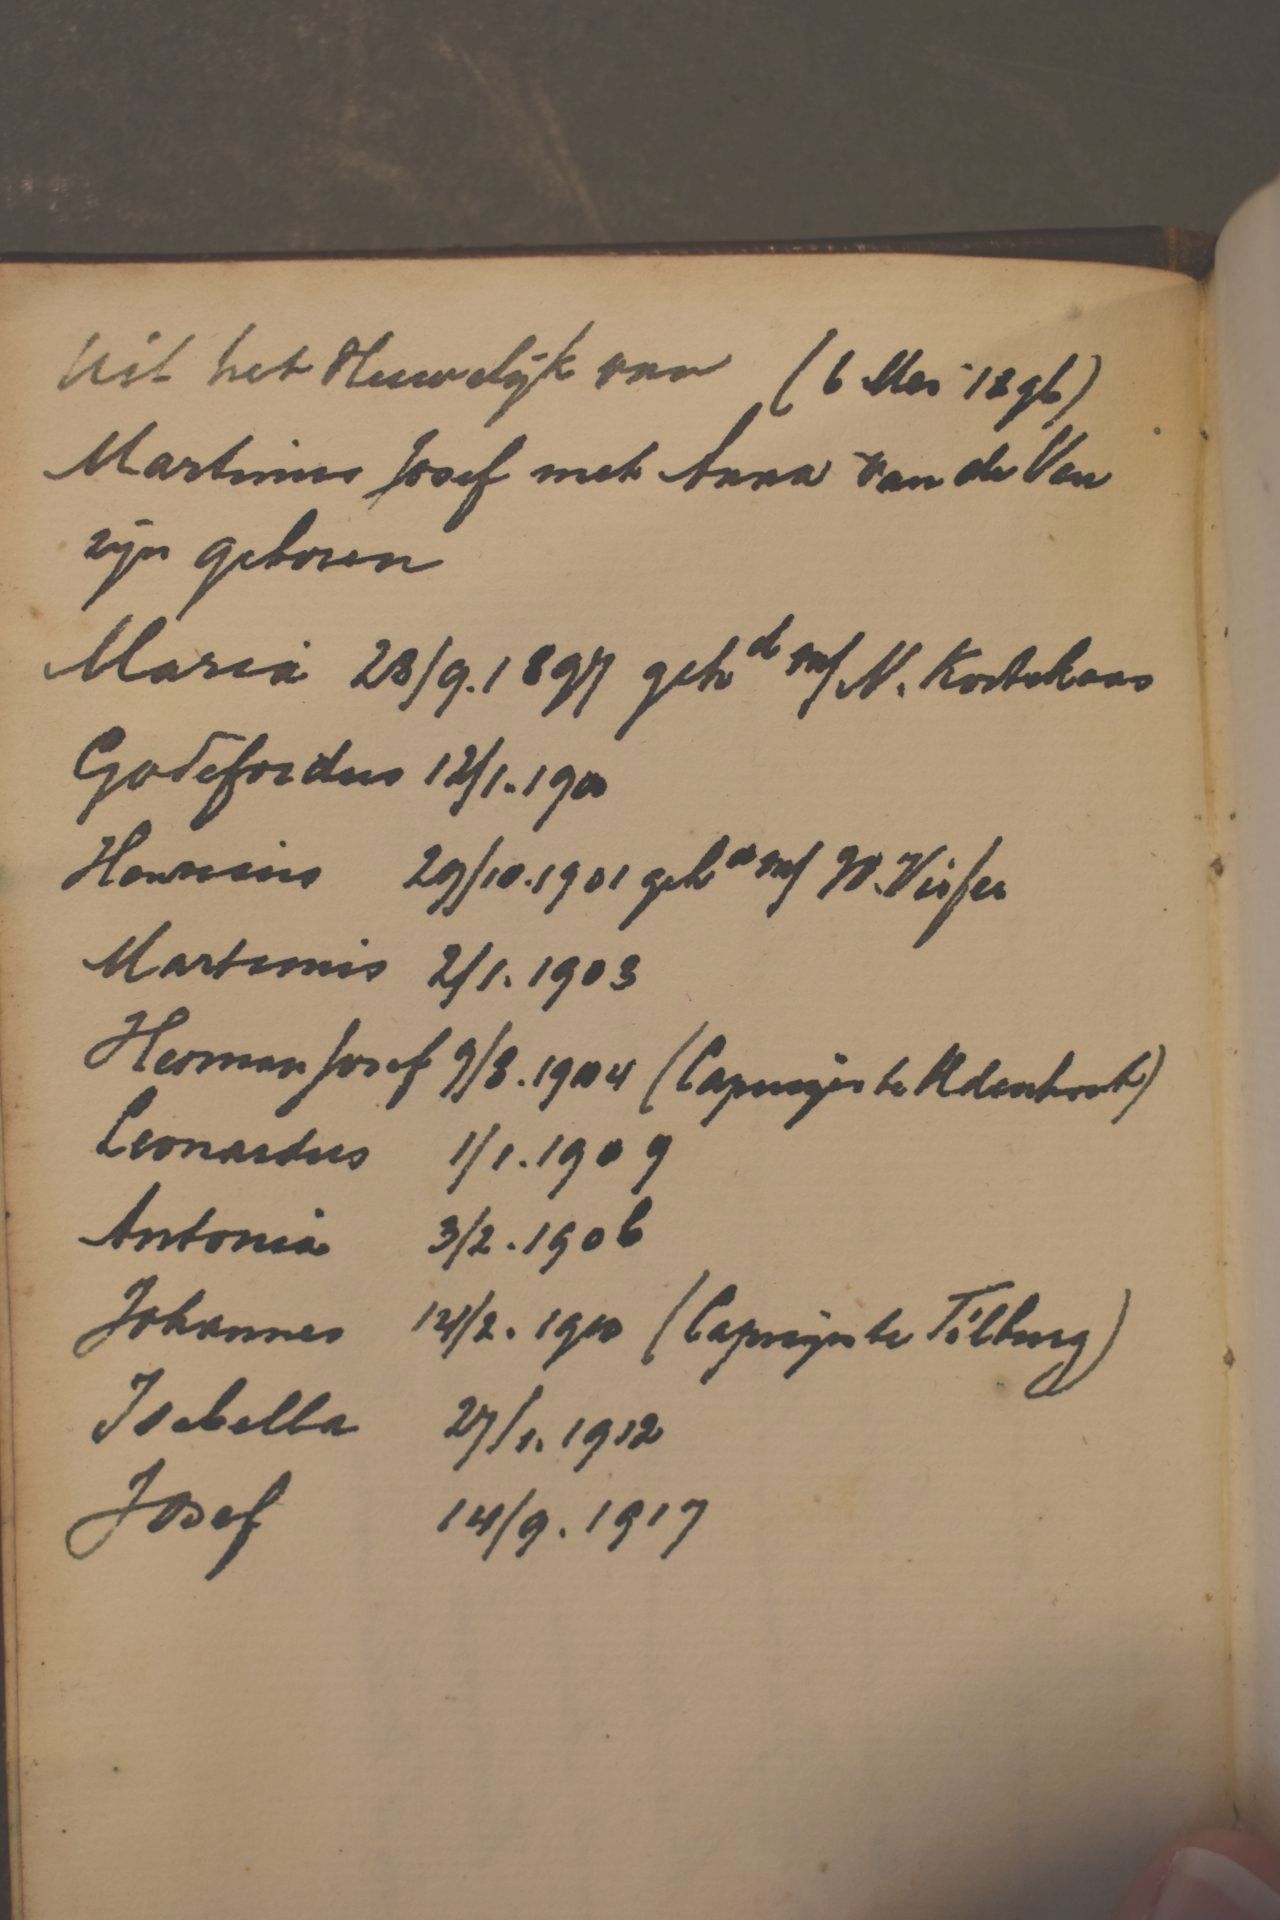 Uit het Huwelijk van (6 Mei 1896)
Martinus Josef met Anna van de Ven
zijn geboren
Maria 28/9.1897 geh d m/ N. Kortekaas
Godefridus 12/1.1900
Henricus 29/10.1901 geh d m/ W. Visser
Martinus 2/1.1903
Herman Josef 9/8.1904 (Capucijn te Udenhout)
Leonardus 1/1.1909
Antonia 3/2.1906
Johannes 14/2.1910 (Capucijn te Tilburg)
Isabella 27/1.1912
Josef 14/9.1917